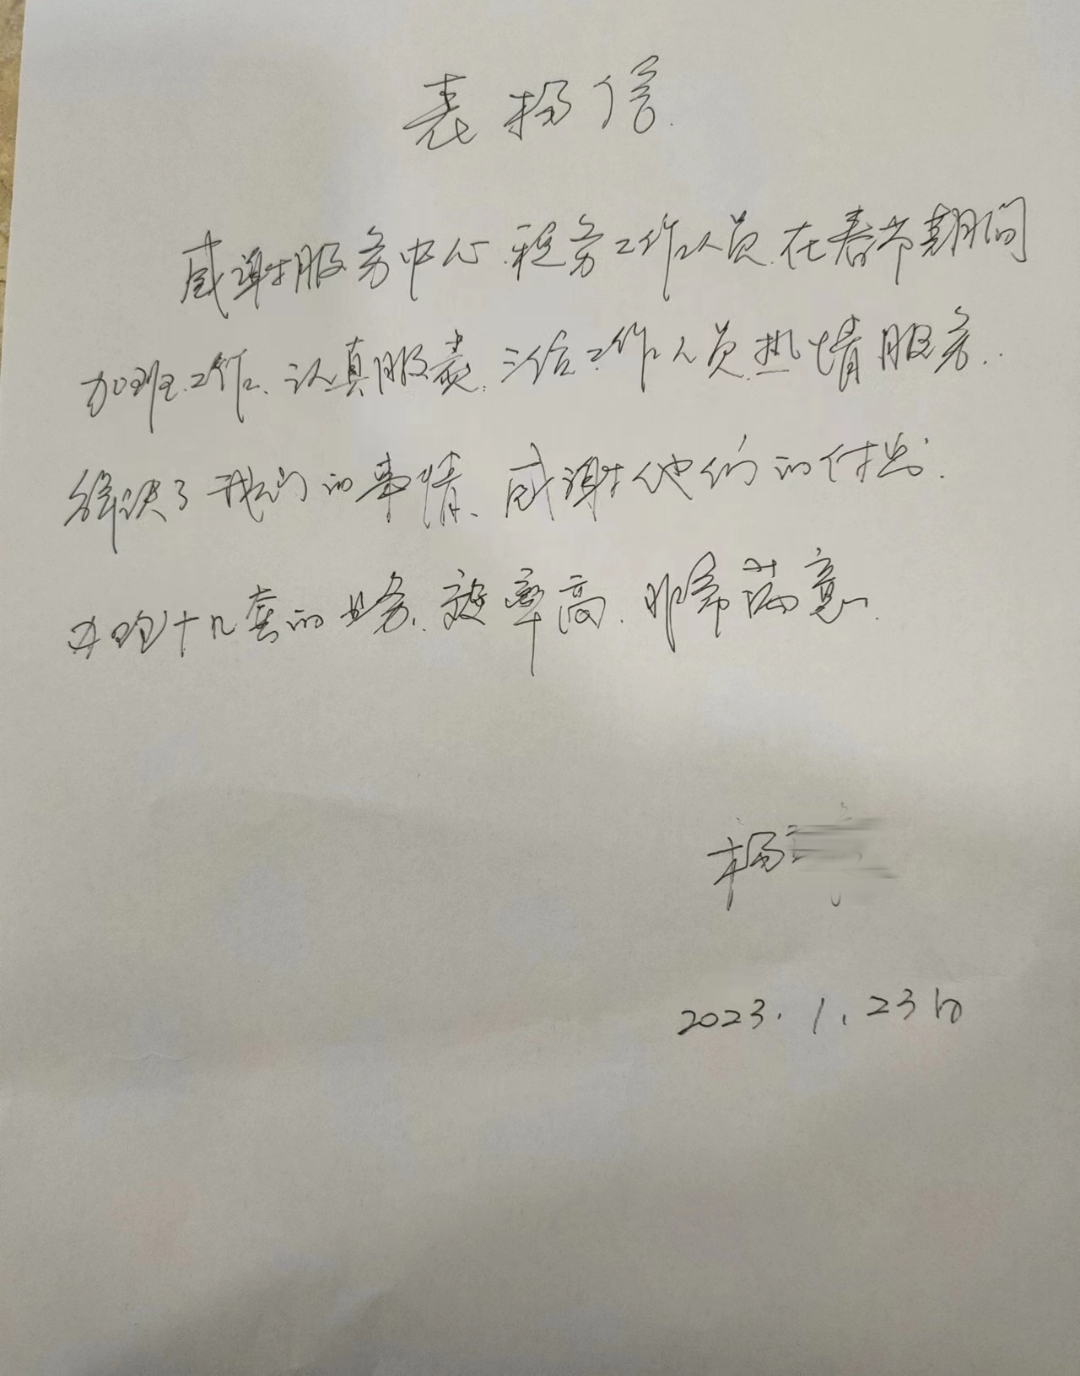 表扬信
感谢服务中心税务工作人员.在春节期间
加班工作、认真服责.三位工作人员热情服务.
解决了我们的事情、感谢他们的付出.
办理十几套的业务.效率高.非常满意.
杨
2023.1.23日